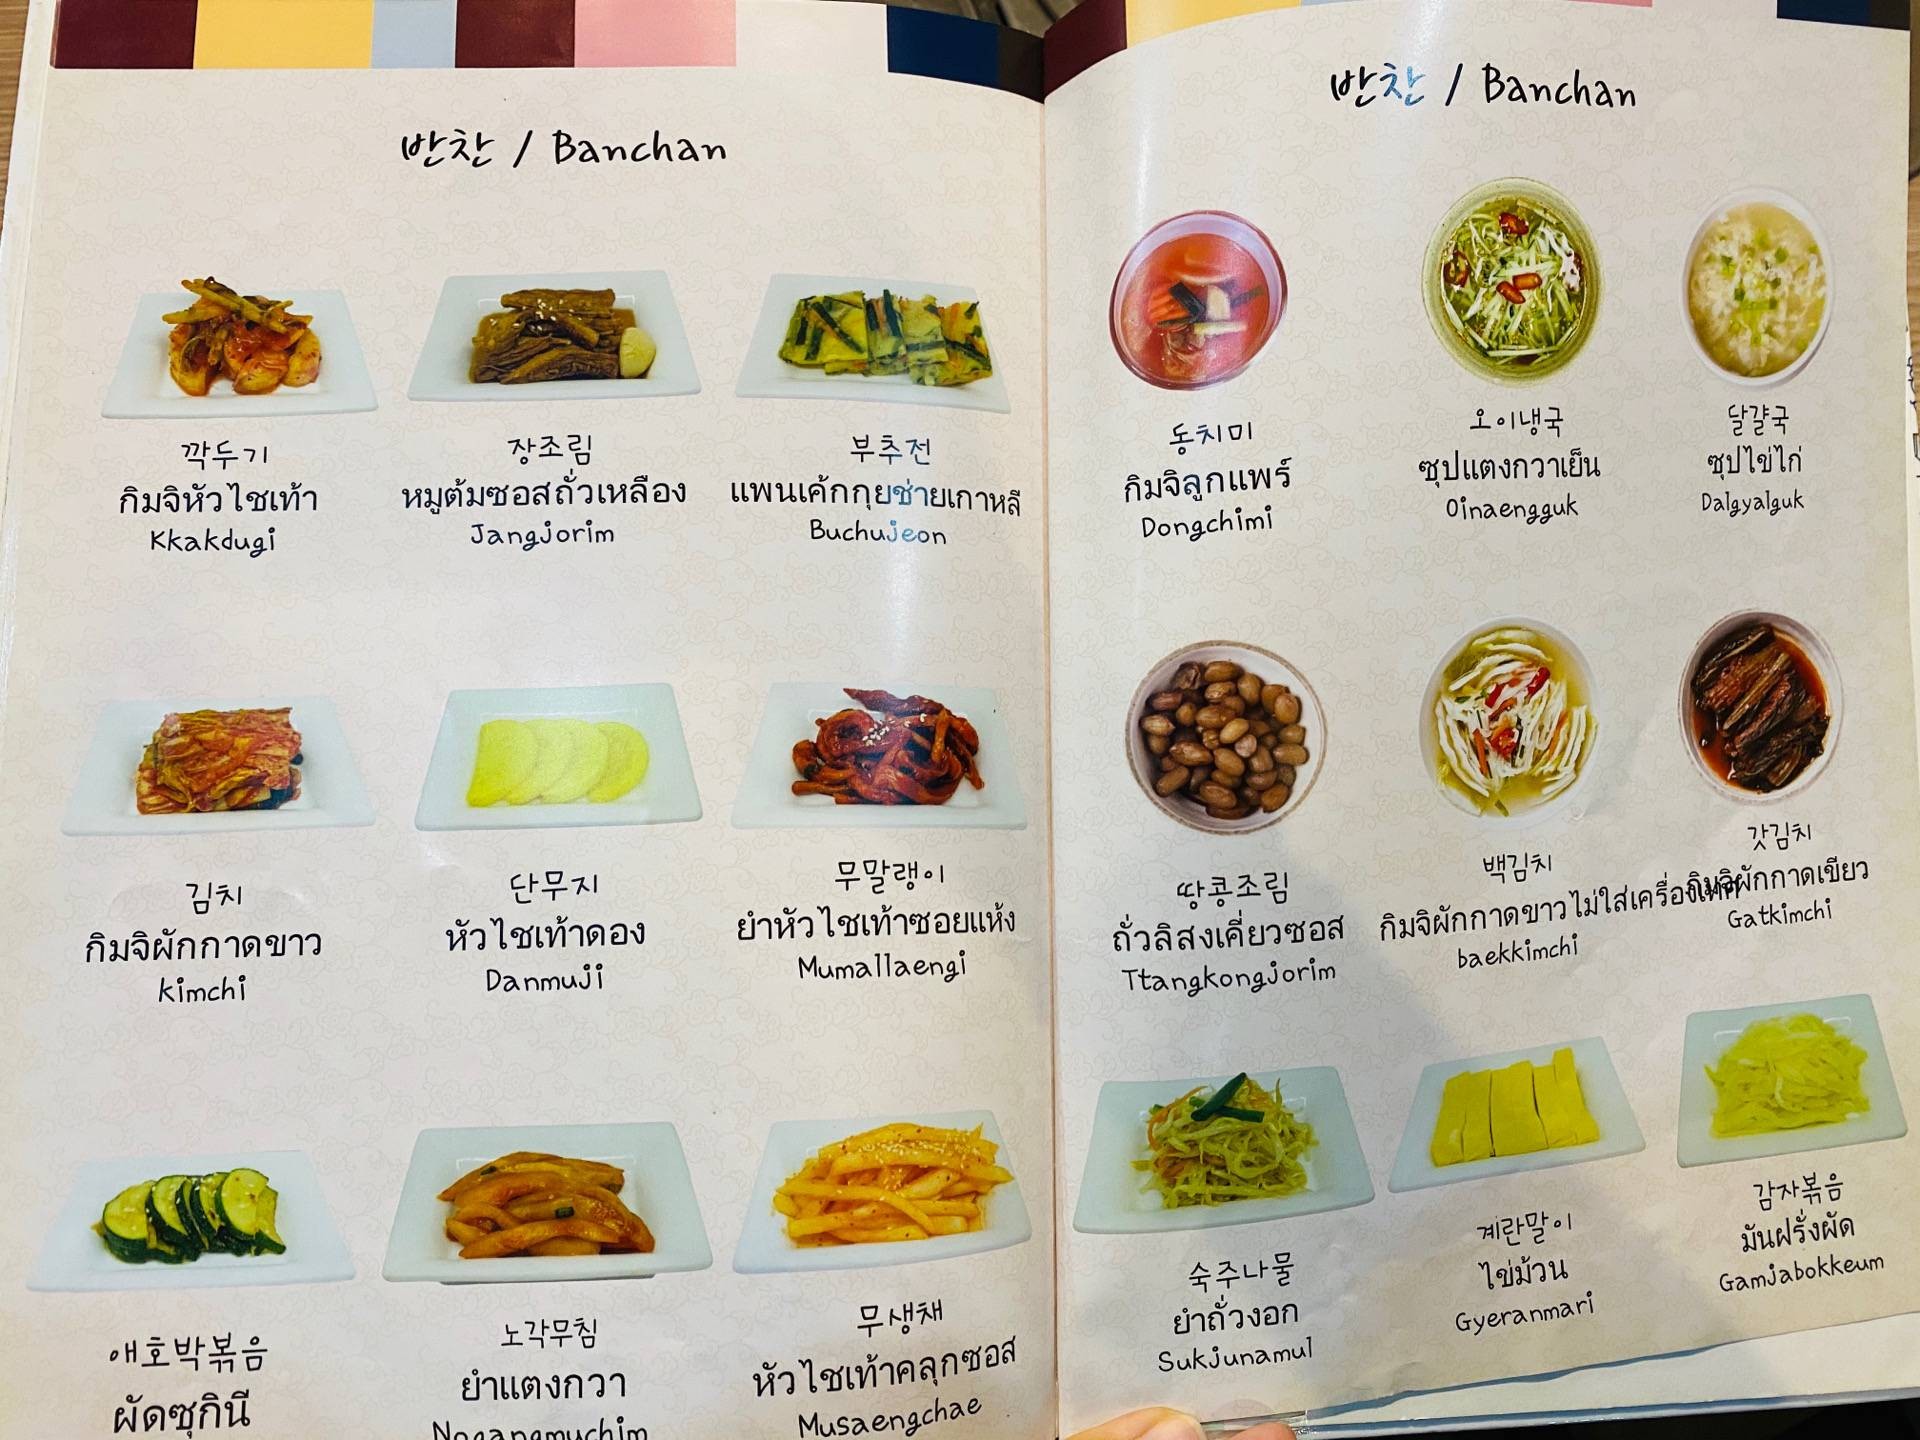 반찬 / Banchan
깍두기
กิมจิหัวไชเท้า
Kkakdugi
장조림
หมูต้มซอสถั่วเหลือง
Jangjorim
부추전
แพนเค้กกุยช่ายเกาหลี
Buchujeon
김치
กิมจิผักกาดขาว
kimchi
단무지
หัวไชเท้าดอง
Danmuji
무말랭이
ยำหัวไชเท้าซอยแห้ง
Mumallaengi
애호박볶음
ผัดซุกินี
노각무침
ยำแตงกวา
Nogangmuchim
무생채
หัวไชเท้าคลุกซอส
Musaengchae
반찬 / Banchan
동치미
กิมจิลูกแพร์
Dongchimi
오이냉국
ซุปแตงกวาเย็น
Oinaengguk
달걀국
ซุปไข่ไก่
Dalgyalguk
땅콩조림
ถั่วลิสงเคี่ยวซอส
Ttangkongjorim
백김치
กิมจิผักกาดขาวไม่ใส่เครื่องเทศ
baekkimchi
갓김치
กิมจิผักกาดเขียว
Gatkimchi
숙주나물
ยำถั่วงอก
Sukjunamul
계란말이
ไข่ม้วน
Gyeranmari
감자볶음
มันฝรั่งผัด
Gamjabokkeum